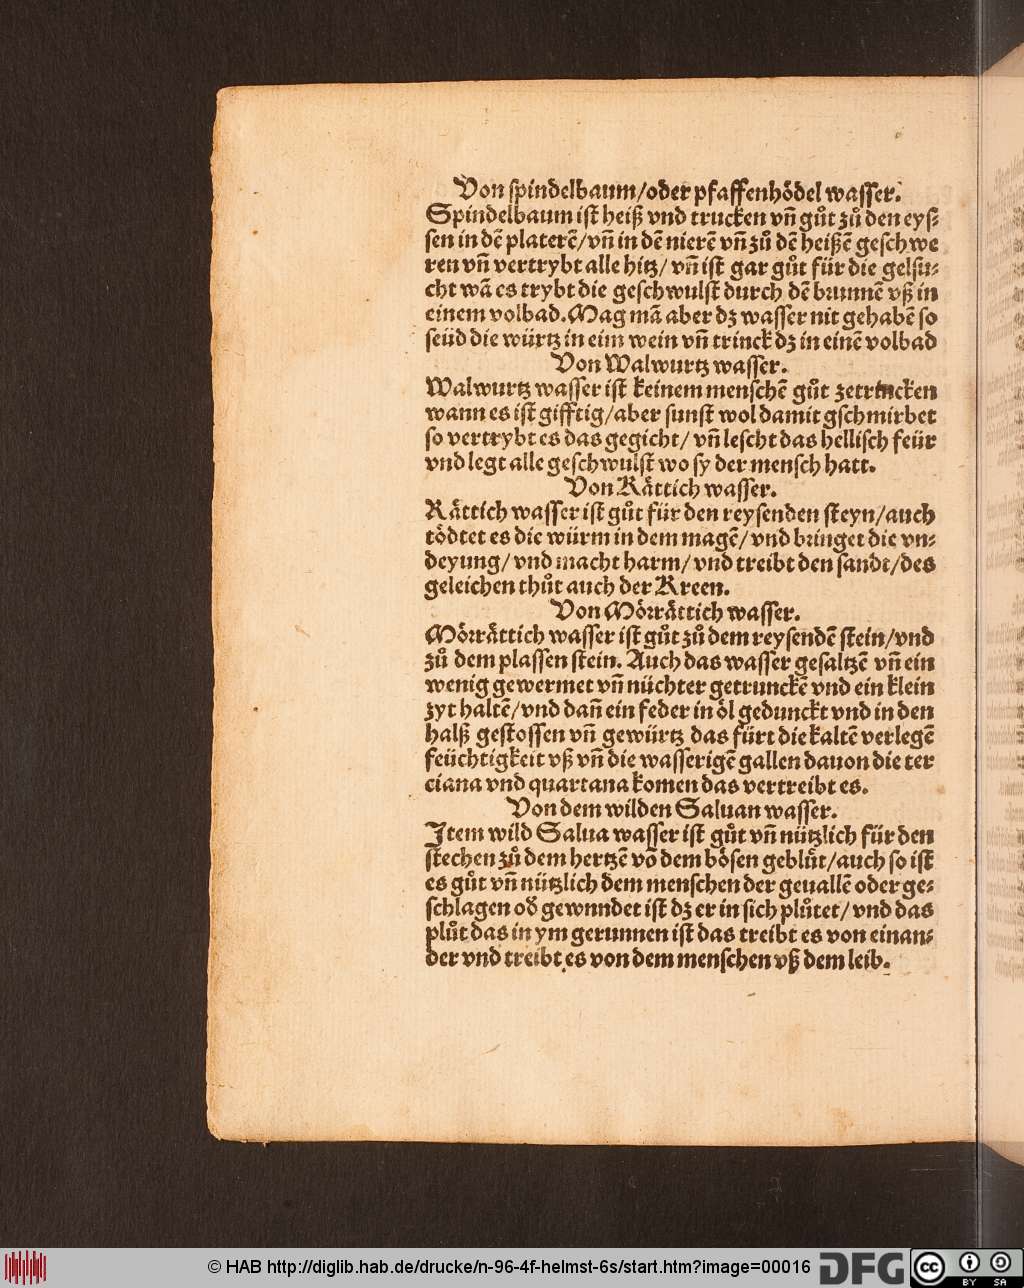 Von spindelbaum/oder pfaffenhödel wasser.
Spindelbaum ist heiß vnd trucken vñ gůt zů den eys⸗
sen in dẽ platerẽ/vñ in dẽ nierẽ vñ zů dẽ heißẽ geschwe
ren vñ vertrybt alle hitz/ vñ ist gar gůt für die gelsu⸗
cht wã es trybt die geschwulst durch dẽ brunnẽ vß in
einem volbad. Mag mã aber dz wasser nit gehabẽ so
seüd die würtz in eim wein vñ trinck dz in einẽ volbad
Von Walwurtz wasser.
Walwurtz wasser ist keinem menschẽ gůt zetrincken
wann es ist gifftig/aber sunst wol damit gschmirbet
so vertrybt es das gegicht/ vñ lescht das hellisch feür
vnd legt alle geschwulst wo sy der mensch hatt.
Von Rättich wasser.
Rättich wasser ist gůt für den reysenden steyn/auch
tödtet es die würm in dem magẽ/ vnd bringet die vn⸗
deyung/ vnd macht harm/ vnd treibt den sandt/des
geleichen thůt auch der Kreen.
Von Mörrättich wasser.
Mörrättich wasser ist gůt zů dem reysendẽ stein/vnd
zů dem plassen stein. Auch das wasser gesaltzẽ vñ ein
wenig gewermet vñ nüchter getrunckẽ vnd ein klein
zyt haltẽ/vnd dañ ein feder in öl gedunckt vnd in den
halß gestossen vñ gewürtz das fürt die kaltẽ verlegẽ
feüchtigkeit vß vñ die wasserigẽ gallen dauon die ter
ciana vnd quartana komen das vertreibt es.
Von dem wilden Saluan wasser.
Item wild Salua wasser ist gůt vñ nützlich für den
stechen zů dem hertzẽ võ dem bösen geblüt/auch so ist
es gůt vñ nützlich dem menschen der geuallẽ oder ge⸗
schlagen oď gewnndet ist dz er in sich plůtet/ vnd das
plůt das in ym gerunnen ist das treibt es von einan⸗
der vnd treibt es von dem menschen vß dem leib.
© HAB http://diglib.hab.de/drucke/n-96-4f-helmst-6s/start.htm?image=00016
DFG
cc BY SA